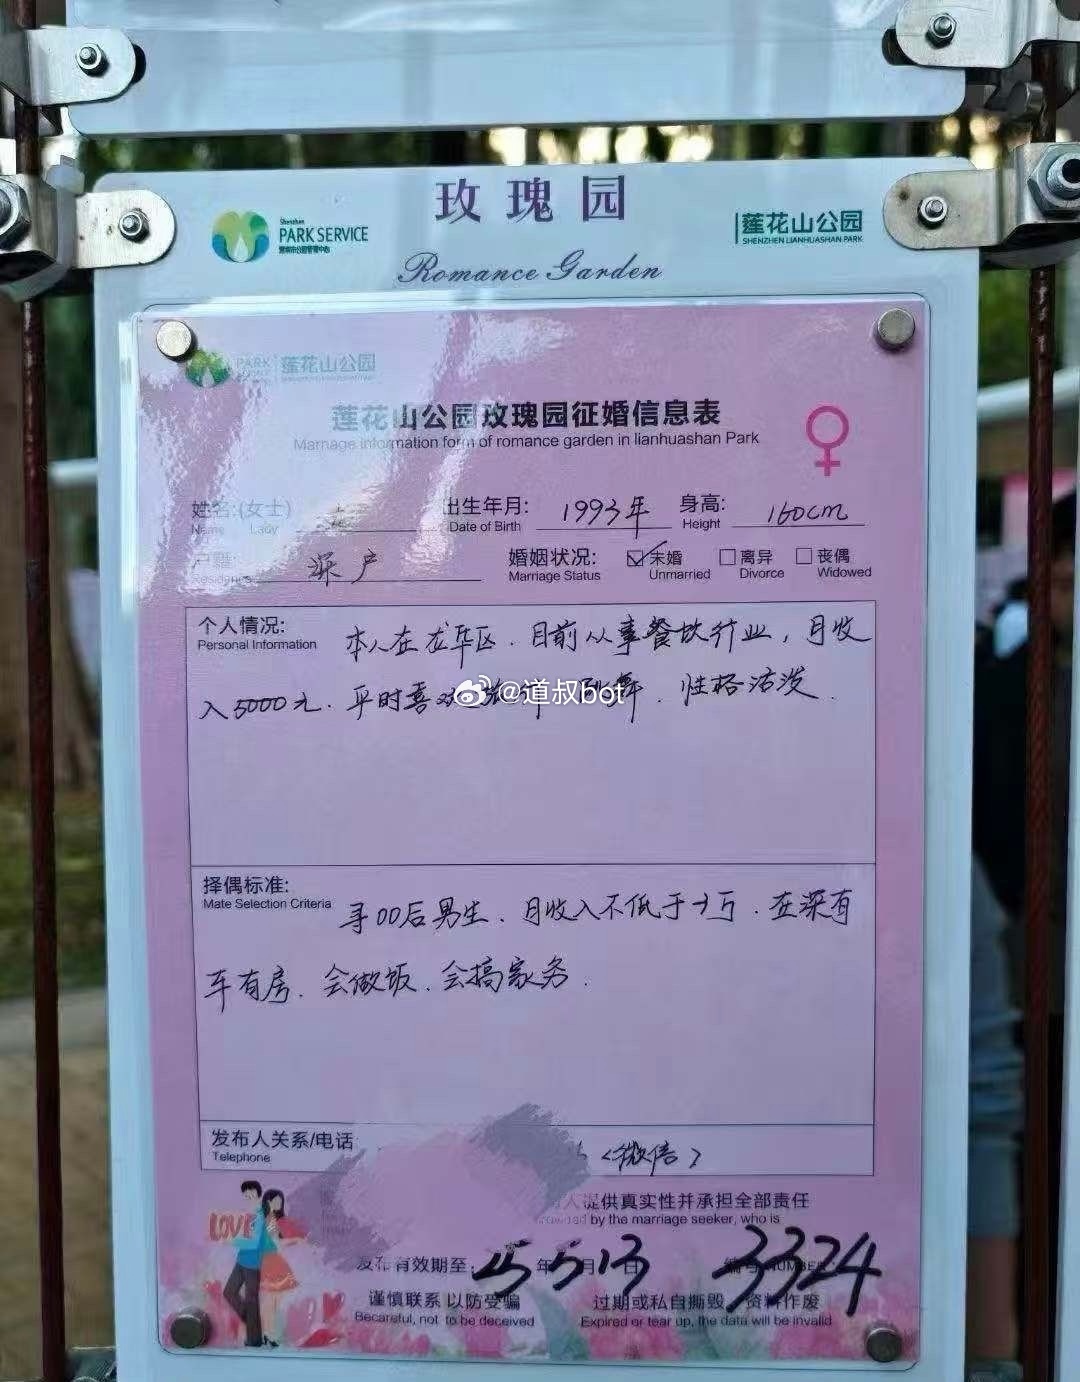 玫瑰园
Shenzhen
PARK SERVICE
深圳市公园管理中心
莲花山公园
SHENZHEN LIANHUASHAN PARK
Romance Garden
PARK
莲花山公园
莲花山公园玫瑰园征婚信息表
Marriage information form of romance garden in lianhuashan Park
姓名:(女士) 出生年月: 1993年 身高: 160cm
Name Lady Date of Birth Height
户籍: 深户 婚姻状况: ☑未婚 □离异 □丧偶
Residence Marriage Status Unmarried Divorce Widowed
个人情况: 本人在龙华区.目前从事餐饮行业,月收
Personal Information
入5000元.平时喜欢 舞.性格活泼.
@道叔bot
择偶标准: 寻00后男生.月收入不低于 万.在深有
Mate Selection Criteria
车有房.会做饭.会搞家务.
发布人关系/电话 <微信>
Telephone
人提供真实性并承担全部责任
by the marriage seeker, who is
LOVE
发布有效期至: 25年5月13日 编号NUMBER: 3324
谨慎联系 以防受骗 过期或私自撕毁,资料作废
Becareful, not to be deceived Expired or tear up, the data will be invalid